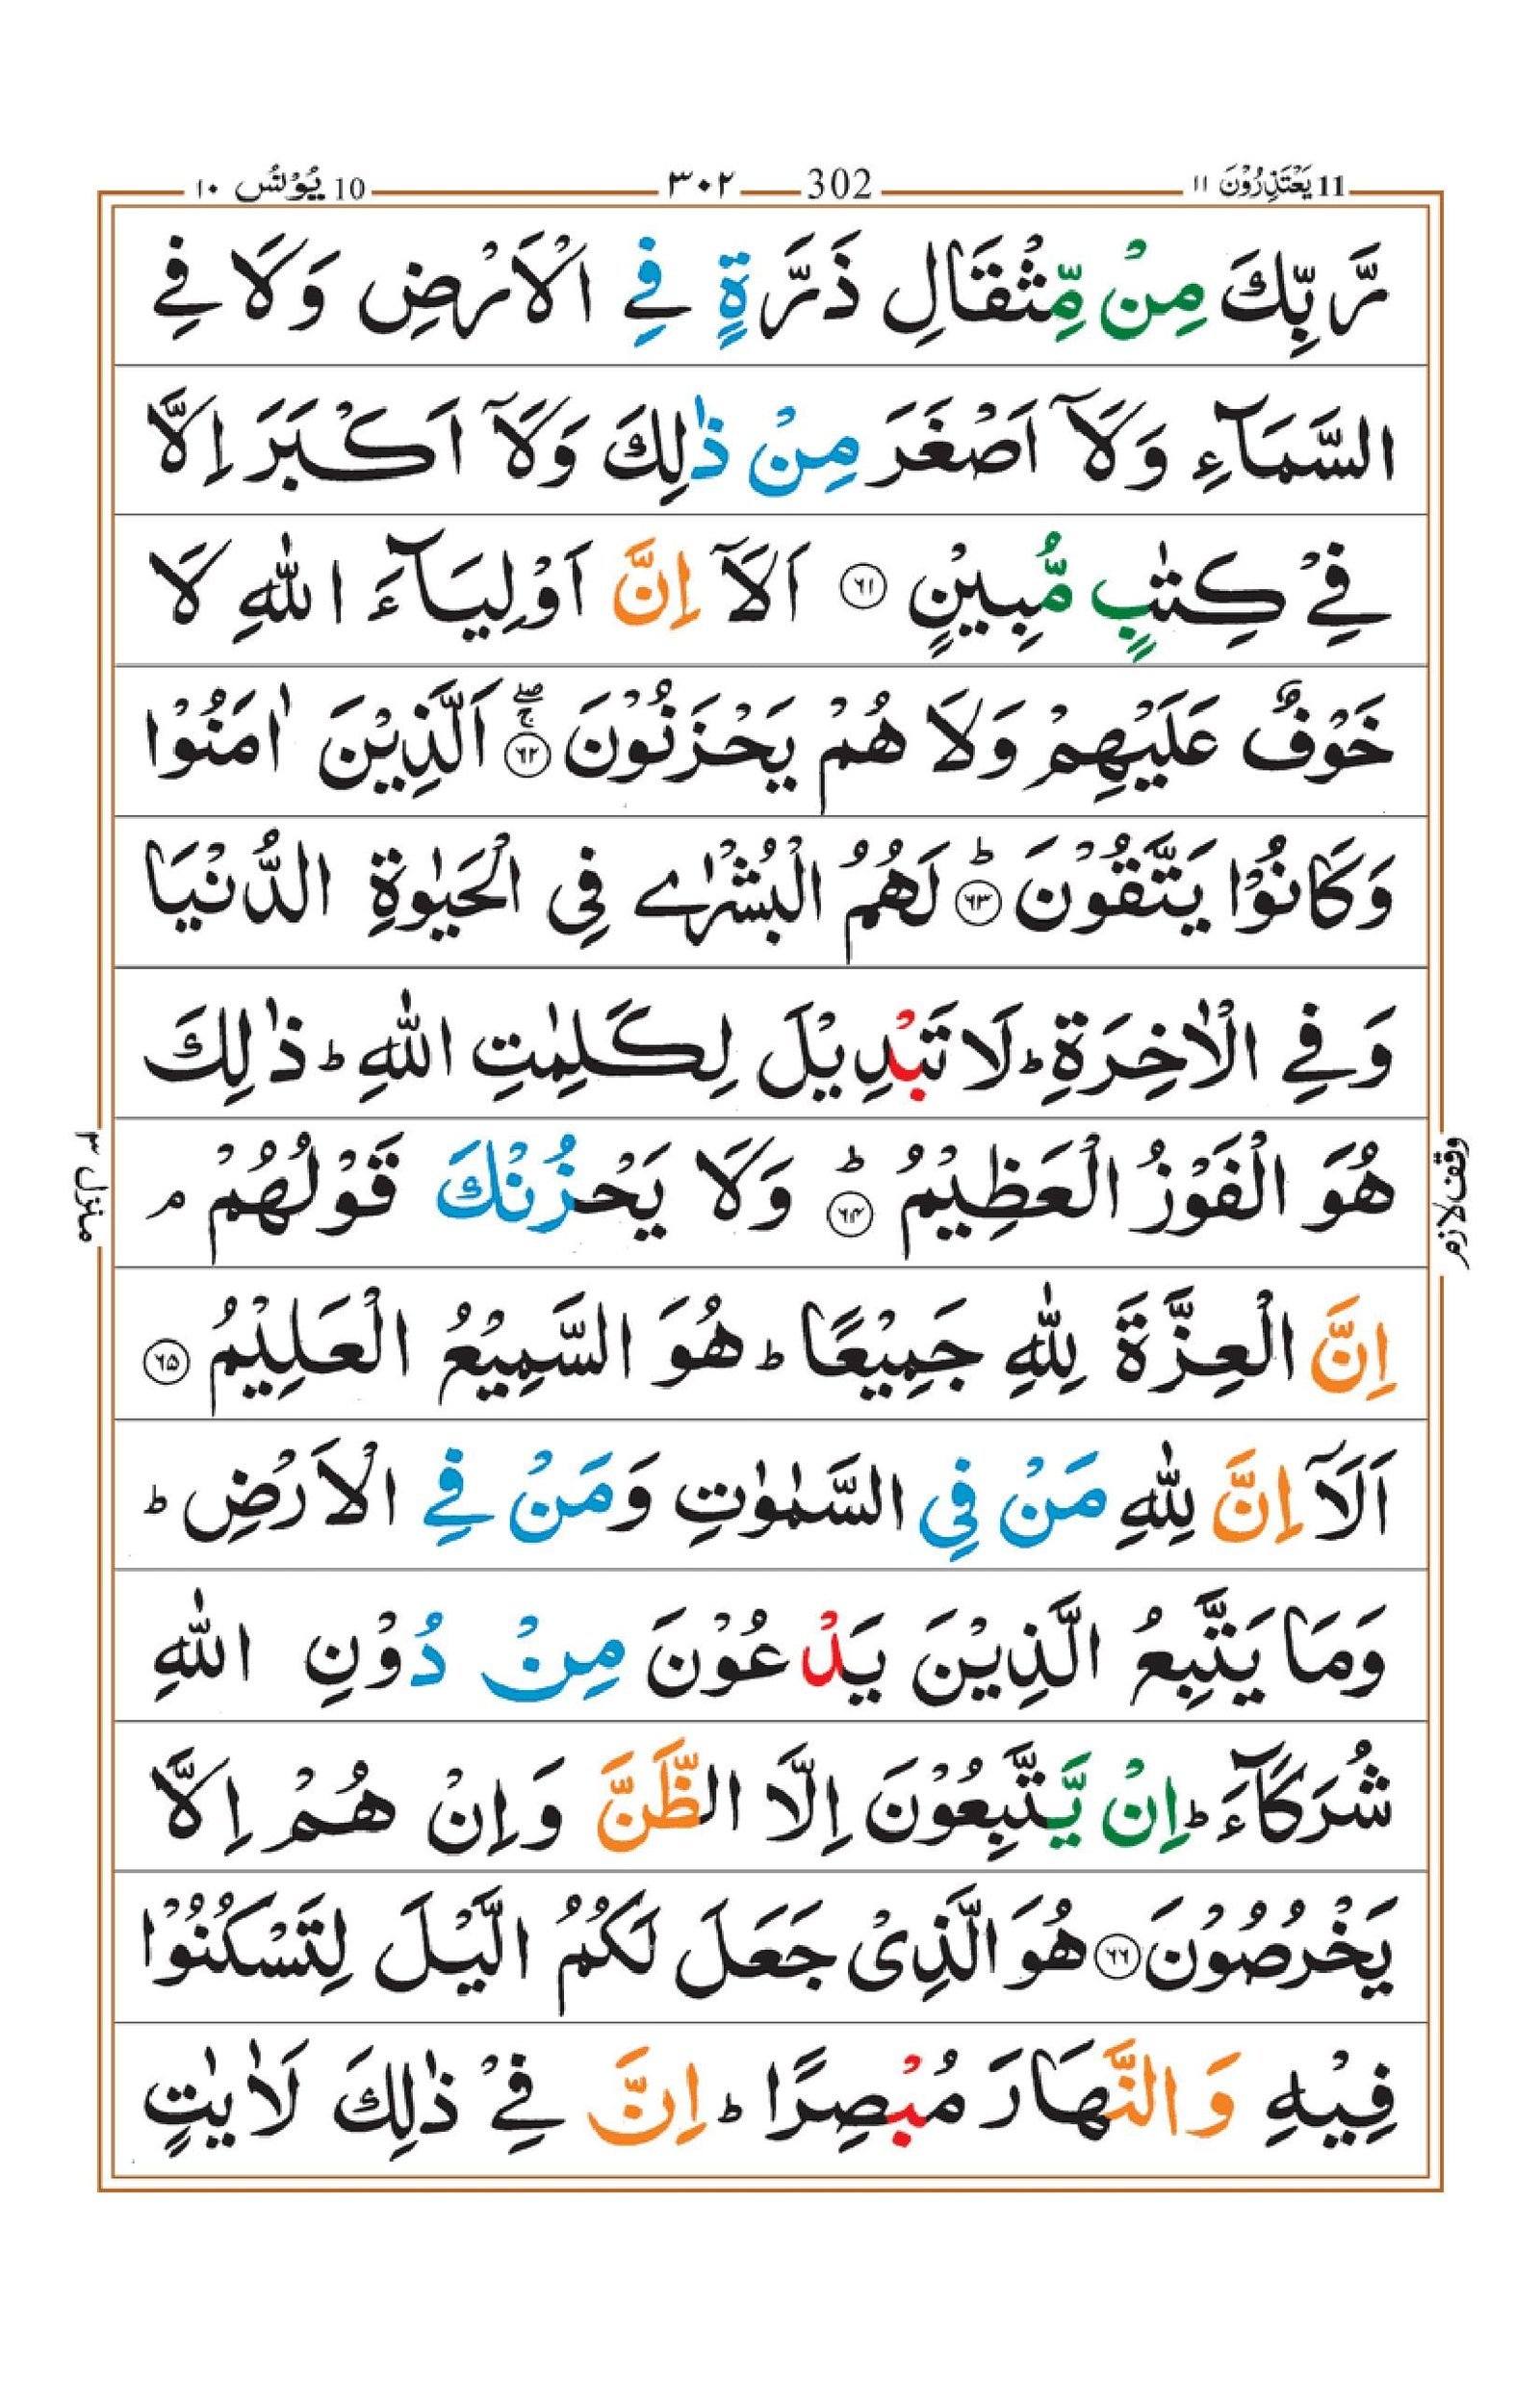 11 يَعْتَذِرُوْنَ ١١
302 ٣٠٢
10 يُوْنُس ١٠
رَّبِّكَ مِنْ مِّثْقَالِ ذَرَّةٍ فِي الْاَرْضِ وَلَا فِي
السَّمَآءِ وَلَآ اَصْغَرَ مِنْ ذٰلِكَ وَلَآ اَكْبَرَ اِلَّا
فِيْ كِتٰبٍ مُّبِيْنٍ ۝٦١ اَلَآ اِنَّ اَوْلِيَآءَ اللّٰهِ لَا
خَوْفٌ عَلَيْهِمْ وَلَا هُمْ يَحْزَنُوْنَ ۝٦٢ۚۖ اَلَّذِيْنَ اٰمَنُوْا
وَكَانُوْا يَتَّقُوْنَ ۝٦٣ؕ لَهُمُ الْبُشْرٰے فِي الْحَيٰوةِ الدُّنْيَا
وَفِي الْاٰخِرَةِ ؕ لَا تَبْدِيْلَ لِكَلِمٰتِ اللّٰهِ ؕ ذٰلِكَ
هُوَ الْفَوْزُ الْعَظِيْمُ ۝٦٤ؕ وَلَا يَحْزُنْكَ قَوْلُهُمْ ۘ
اِنَّ الْعِزَّةَ لِلّٰهِ جَمِيْعًا ؕ هُوَ السَّمِيْعُ الْعَلِيْمُ ۝٦٥
اَلَآ اِنَّ لِلّٰهِ مَنْ فِي السَّمٰوٰتِ وَمَنْ فِي الْاَرْضِ ؕ
وَمَا يَتَّبِعُ الَّذِيْنَ يَدْعُوْنَ مِنْ دُوْنِ اللّٰهِ
شُرَكَآءَ ؕ اِنْ يَّتَّبِعُوْنَ اِلَّا الظَّنَّ وَاِنْ هُمْ اِلَّا
يَخْرُصُوْنَ ۝٦٦ هُوَ الَّذِيْ جَعَلَ لَكُمُ الَّيْلَ لِتَسْكُنُوْا
فِيْهِ وَالنَّهَارَ مُبْصِرًا ؕ اِنَّ فِيْ ذٰلِكَ لَاٰيٰتٍ
وقف لازم
منزل ٣